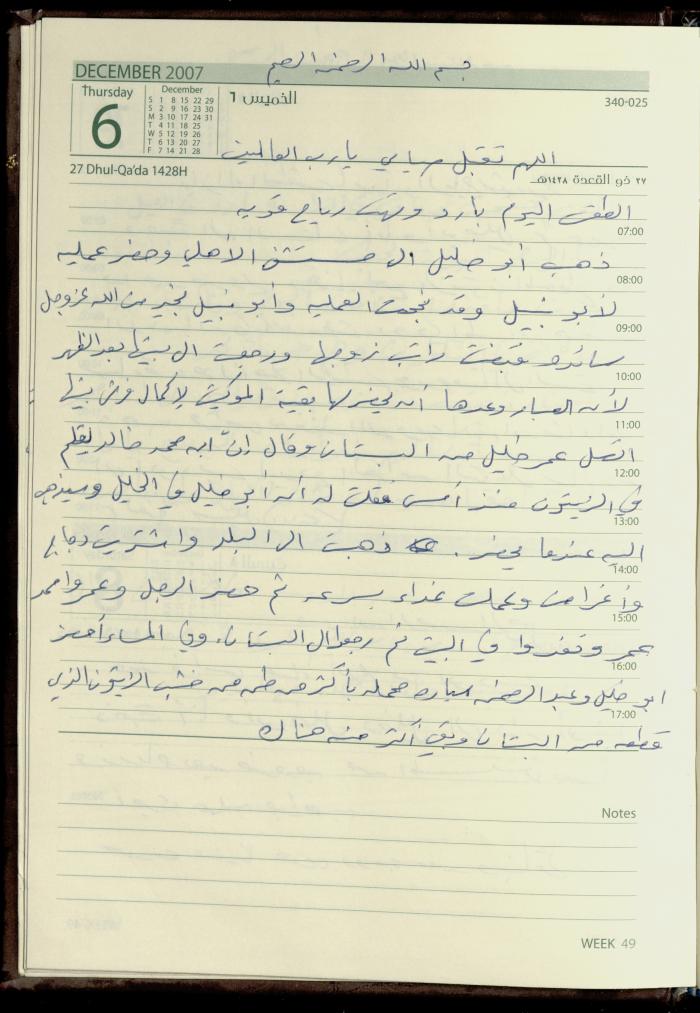 بسم الله الرحمن الرحيم
DECEMBER 2007
Thursday
6
December
S 1 8 15 22 29
S 2 9 16 23 30
M 3 10 17 24 31
T 4 11 18 25
W 5 12 19 26
T 6 13 20 27
F 7 14 21 28
الخميس ٦
340-025
اللهم تقبل صيامي يا رب العالمين
27 Dhul-Qa'da 1428H
٢٧ ذو القعدة ١٤٢٨هـ
الطقس اليوم بارد وتهب رياح قويه
07:00
ذهب أبو خليل الى مستشفى الأهلي وحضر عمليه
08:00
لأبو نبيل وقد نجحت العمليه وأبو نبيل بخير من الله عزوجل
09:00
سائده قبضت راتب زوجها ورجعت الى بيتها بعد الظهر
10:00
لأنه العبار وعدها أنه يحضر لها بقية الموكيت لإكمال فرش بيتها
11:00
اتصل عمر خليل من البستان وقال إنّ ابه محمد خالد يقلم
12:00
في الزيتون منذ أمس فقلت له أنه أبو خليل في الخليل وسيذهب
13:00
اليه عندما يحضر . ذهبت الى البلد واشتريت دجاج
14:00
وأغراض وعملت غداء بسرعه ثم حضر الرجل وعمر وامحمد
15:00
عمر وتغدوا في البيت ثم رجعوا الى البستان. وفي المساء أحضر
16:00
ابو خليل وعبد الرحمن سياره محمله بأكثر من طن من خشب الزيتون الذي
17:00
قطعه من البستان وبقي أكثر منه هناك
Notes
WEEK 49